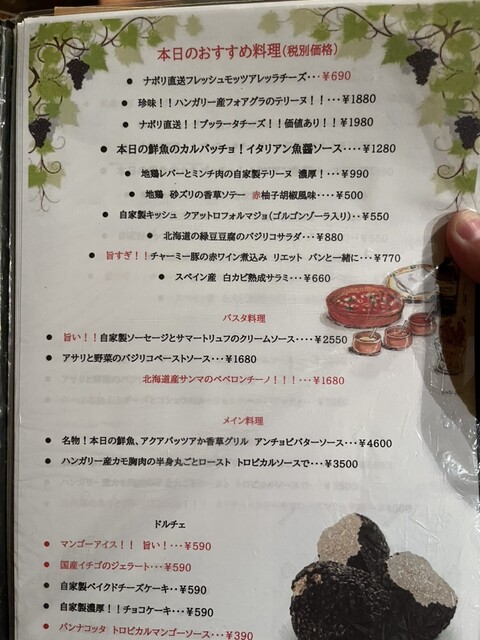 本日のおすすめ料理(税別価格)
● ナポリ直送フレッシュモッツアレッラチーズ・・・¥690
● 珍味！！ハンガリー産フォアグラのテリーヌ！！・・・¥1880
● ナポリ直送！！ブッラータチーズ！！価値あり！！¥1980
● 本日の鮮魚のカルパッチョ！イタリアン魚醤ソース・・・・¥1280
● 地鶏レバーとミンチ肉の自家製テリーヌ 濃厚！・・・¥990
● 地鶏 砂ズリの香草ソテー 赤柚子胡椒風味・・・・¥500
● 自家製キッシュ クアットロフォルマジョ(ゴルゴンゾーラ入り)・・¥550
● 北海道の緑豆豆腐のバジリコサラダ・・・¥880
● 旨すぎ！！チャーミー豚の赤ワイン煮込み リエット パンと一緒に・・・¥770
● スペイン産 白カビ熟成サラミ・・・¥660
パスタ料理
● 旨い！！自家製ソーセージとサマートリュフのクリームソース・・・・¥2550
● アサリと野菜のバジリコペーストソース・・・¥1680
北海道産サンマのペペロンチーノ！！！・・・¥1680
メイン料理
● 名物！本日の鮮魚、アクアパッツアか香草グリル アンチョビバターソース・・・¥4600
● ハンガリー産カモ胸肉の半身丸ごとロースト トロピカルソースで・・・¥3500
ドルチェ
● マンゴーアイス！！ 旨い！・・・¥590
● 国産イチゴのジェラート・・・¥590
● 自家製ベイクドチーズケーキ・・¥590
● 自家製濃厚！！チョコケーキ・・・¥590
● パンナコッタ トロピカルマンゴーソース・・・¥390